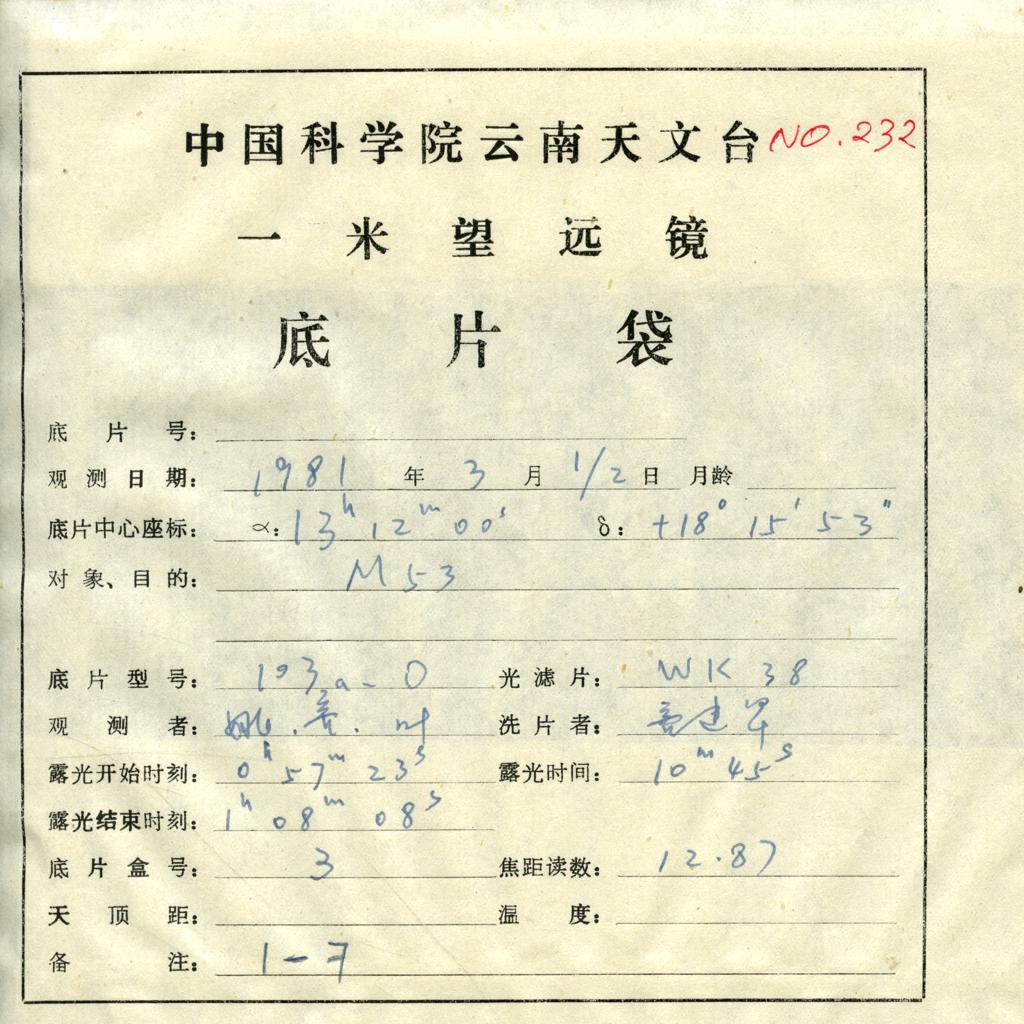 中国科学院云南天文台 NO.232
一米望远镜
底片袋
底片号：
观测日期： 1981 年 3 月 1/2 日 月龄
底片中心座标： α： 13h 12m 00s δ： +18° 15′ 53″
对象、目的： M53
底片型号： 103a-O 光滤片： WK 38
观测者： 洗片者：
露光开始时刻： 0h 57m 23s 露光时间： 10m 45s
露光结束时刻： 1h 08m 08s
底片盒号： 3 焦距读数： 12.87
天顶距： 温度：
备注： 1-7